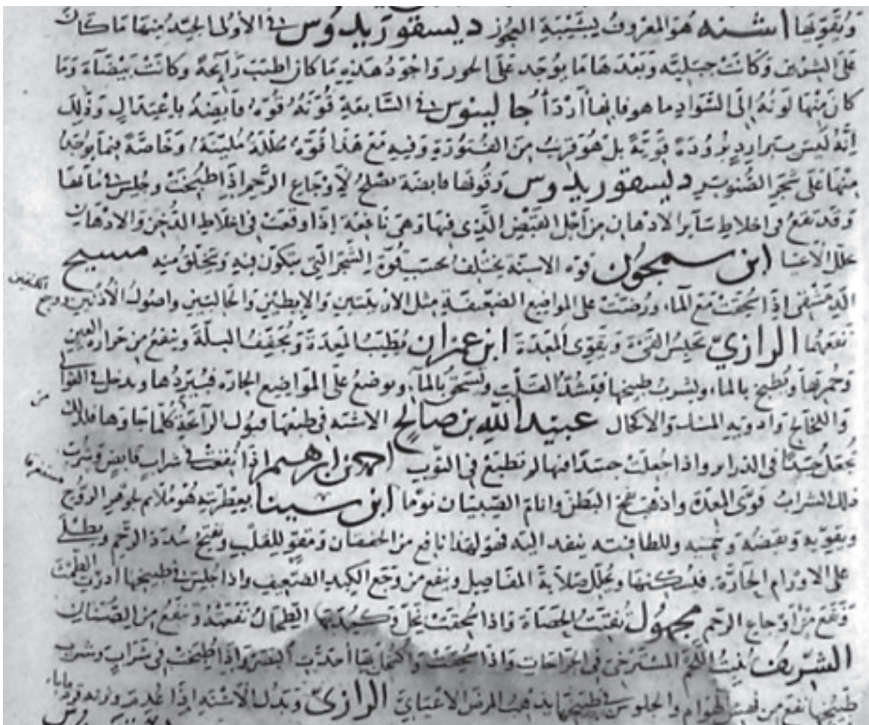 ويقويها اشنه هو المعروف بشيبة العجوز ديسقوريدوس في الأولى الجيد منها ما كان
على الشربين وكانت جبلية وبعدها ما يوجد على الحور واجود هذه ما كان اطيب رائحة وكانت بيضاء وما
كان منها لونه إلى السواد ما هو فانها أردأ جالينوس في السابعة قوته قوة قابضة باعتدال وذلك
انه ليس ببارد برودة قوية بل هو قريب من الفتورة وفيه مع هذا قوة محللة ملينة وخاصة بما يوجد
منها على شجر الصنوبر ديسقوريدوس وقوتها قابضة تصلح لأوجاع الرحم إذا طبخت وجلس في مائها
وقد تقع في اخلاط ساير الادهان من أجل القبض الذي فيها وهي نافعة إذا وقعت في اخلاط الدخن والادهان
تحلل الاعيا ابن سمجون قوة الاشنة تختلف بحسب قوة الشجر التي تتكون فيه وتخلق منه مسيح
إذا سحقت مع الماء ورضت على المواضع الضعيفة مثل الاربيتين والابطين والحالبين واصول الأذنين
نفعها الرازي تحبس القيء وتقوي المعدة ابن عمران تطيب المعدة وتجفف البلة وينفع من حرارة العين
وحمرتها وتطبخ بالماء ويشرب طبيخها فتشد القلب وتسحق بالماء وتوضع على المواضع الحارة فيبردها ويدخل في
واللخالخ وادوية المسك والاكحال عبيد الله بن صالح الاشنه في طبعها قبول الرائحة كلما جاورها فلذلك
تجعل جسدا في الذراير واذا جعلت جسدا فيها لم تطبع في الثوب احمد بن ابرهيم إذا نقعت في شراب قابض وشرب
ذلك الشراب قوى المعدة واذهب نفخ البطن وانام الصبيان نوما ابن سينا بعطريته هو ملائم لجوهر الروح
ويقويه وبقبضه ومتينه وللطافته ينفذ اليه فهو لهذا نافع من الخفقان ومقو للقلب ويفتح سدد الرحم ويطلى
على الاورام الحارة فيسكنها ويحلل صلابة المفاصل وينفع من وجع الكبد الضعيف واذا جلس في طبيخها أدرت الطمث
وتنفع من أوجاع الرحم مجهول تفتت الحصاة واذا سحقت بخل وكمد بها الطحال نفعته وتنفع من الصئبان
الشريف تنبت اللحم المسترخي في الجراحات واذا سحقت واكتحل بها أحدت البصر وإذا طبخت في شراب وشرب
طبيخها نفع من الهوام والجلوس في طبيخها يذهب المرض الاعيائي الرازي وبدل الاشنه إذا عدم وزنه